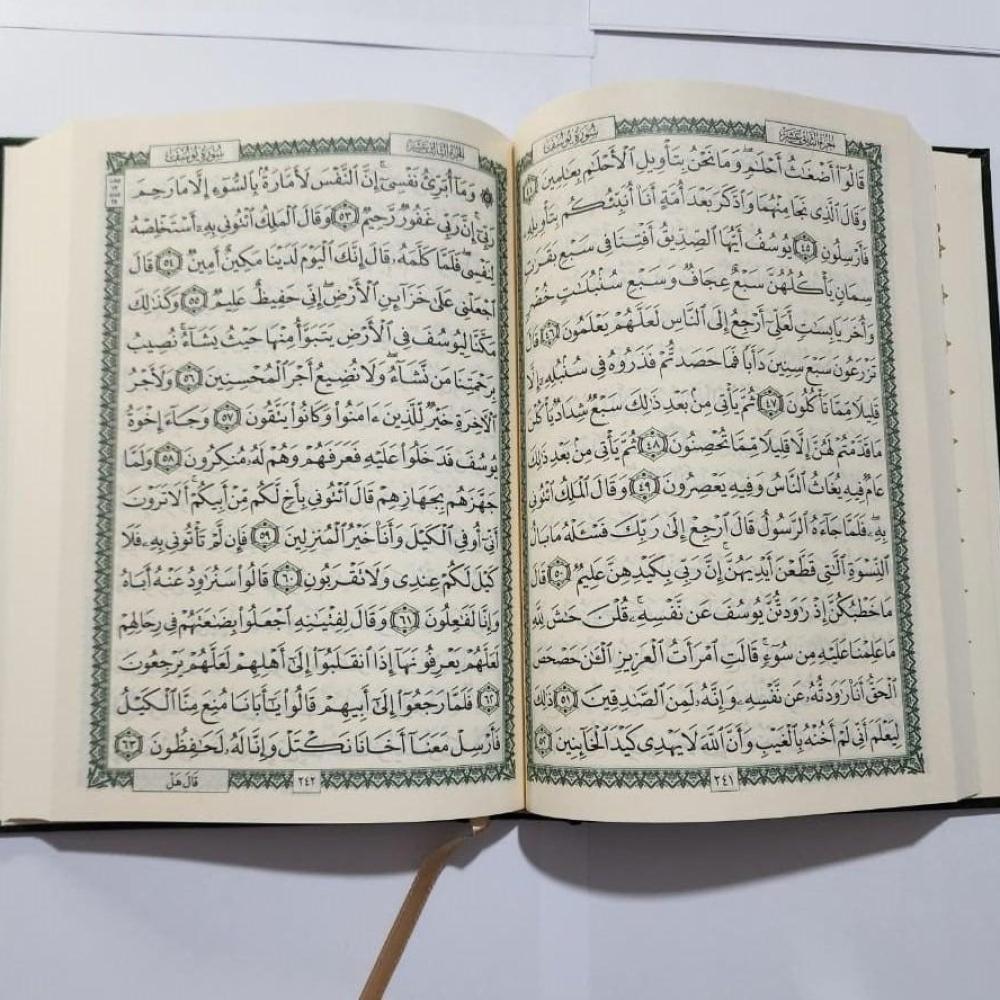 سُورَةُ يُوسُفَ
الجُزْءُ الثَّانِي عَشَر
قَالُوٓا۟ أَضْغَٰثُ أَحْلَٰمٍۢ ۖ وَمَا نَحْنُ بِتَأْوِيلِ ٱلْأَحْلَٰمِ بِعَٰلِمِينَ ٤٤
وَقَالَ ٱلَّذِى نَجَا مِنْهُمَا وَٱدَّكَرَ بَعْدَ أُمَّةٍ أَنَا۠ أُنَبِّئُكُم بِتَأْوِيلِهِۦ
فَأَرْسِلُونِ ٤٥ يُوسُفُ أَيُّهَا ٱلصِّدِّيقُ أَفْتِنَا فِى سَبْعِ بَقَرَٰتٍ
سِمَانٍ يَأْكُلُهُنَّ سَبْعٌ عِجَافٌ وَسَبْعِ سُنۢبُلَٰتٍ خُضْرٍ
وَأُخَرَ يَابِسَٰتٍ لَّعَلِّىٓ أَرْجِعُ إِلَى ٱلنَّاسِ لَعَلَّهُمْ يَعْلَمُونَ ٤٦ قَالَ
تَزْرَعُونَ سَبْعَ سِنِينَ دَأَبًا فَمَا حَصَدتُّمْ فَذَرُوهُ فِى سُنۢبُلِهِۦٓ إِلَّا
قَلِيلًا مِّمَّا تَأْكُلُونَ ٤٧ ثُمَّ يَأْتِى مِنۢ بَعْدِ ذَٰلِكَ سَبْعٌ شِدَادٌ يَأْكُلْنَ
مَا قَدَّمْتُمْ لَهُنَّ إِلَّا قَلِيلًا مِّمَّا تُحْصِنُونَ ٤٨ ثُمَّ يَأْتِى مِنۢ بَعْدِ ذَٰلِكَ
عَامٌ فِيهِ يُغَاثُ ٱلنَّاسُ وَفِيهِ يَعْصِرُونَ ٤٩ وَقَالَ ٱلْمَلِكُ ٱئْتُونِى
بِهِۦ ۖ فَلَمَّا جَآءَهُ ٱلرَّسُولُ قَالَ ٱرْجِعْ إِلَىٰ رَبِّكَ فَسْـَٔلْهُ مَا بَالُ
ٱلنِّسْوَةِ ٱلَّٰتِى قَطَّعْنَ أَيْدِيَهُنَّ ۚ إِنَّ رَبِّى بِكَيْدِهِنَّ عَلِيمٌ ٥٠ قَالَ
مَا خَطْبُكُنَّ إِذْ رَٰوَدتُّنَّ يُوسُفَ عَن نَّفْسِهِۦ ۚ قُلْنَ حَٰشَ لِلَّهِ
مَا عَلِمْنَا عَلَيْهِ مِن سُوٓءٍ ۚ قَالَتِ ٱمْرَأَتُ ٱلْعَزِيزِ ٱلْـَٰٔنَ حَصْحَصَ
ٱلْحَقُّ أَنَا۠ رَٰوَدتُّهُۥ عَن نَّفْسِهِۦ وَإِنَّهُۥ لَمِنَ ٱلصَّٰدِقِينَ ٥١ ذَٰلِكَ
لِيَعْلَمَ أَنِّى لَمْ أَخُنْهُ بِٱلْغَيْبِ وَأَنَّ ٱللَّهَ لَا يَهْدِى كَيْدَ ٱلْخَآئِنِينَ ٥٢
٢٤١
سُورَةُ يُوسُفَ
وَمَآ أُبَرِّئُ نَفْسِىٓ ۚ إِنَّ ٱلنَّفْسَ لَأَمَّارَةٌۢ بِٱلسُّوٓءِ إِلَّا مَا رَحِمَ
رَبِّىٓ ۚ إِنَّ رَبِّى غَفُورٌ رَّحِيمٌ ٥٣ وَقَالَ ٱلْمَلِكُ ٱئْتُونِى بِهِۦٓ أَسْتَخْلِصْهُ
لِنَفْسِى ۖ فَلَمَّا كَلَّمَهُۥ قَالَ إِنَّكَ ٱلْيَوْمَ لَدَيْنَا مَكِينٌ أَمِينٌ ٥٤ قَالَ
ٱجْعَلْنِى عَلَىٰ خَزَآئِنِ ٱلْأَرْضِ ۖ إِنِّى حَفِيظٌ عَلِيمٌ ٥٥ وَكَذَٰلِكَ
مَكَّنَّا لِيُوسُفَ فِى ٱلْأَرْضِ يَتَبَوَّأُ مِنْهَا حَيْثُ يَشَآءُ ۚ نُصِيبُ
بِرَحْمَتِنَا مَن نَّشَآءُ ۖ وَلَا نُضِيعُ أَجْرَ ٱلْمُحْسِنِينَ ٥٦ وَلَأَجْرُ
ٱلْـَٔاخِرَةِ خَيْرٌ لِّلَّذِينَ ءَامَنُوا۟ وَكَانُوا۟ يَتَّقُونَ ٥٧ وَجَآءَ إِخْوَةُ
يُوسُفَ فَدَخَلُوا۟ عَلَيْهِ فَعَرَفَهُمْ وَهُمْ لَهُۥ مُنكِرُونَ ٥٨ وَلَمَّا
جَهَّزَهُم بِجَهَازِهِمْ قَالَ ٱئْتُونِى بِأَخٍ لَّكُم مِّنْ أَبِيكُمْ ۚ أَلَا تَرَوْنَ
أَنِّىٓ أُوفِى ٱلْكَيْلَ وَأَنَا۠ خَيْرُ ٱلْمُنزِلِينَ ٥٩ فَإِن لَّمْ تَأْتُونِى بِهِۦ فَلَا
كَيْلَ لَكُمْ عِندِى وَلَا تَقْرَبُونِ ٦٠ قَالُوا۟ سَنُرَٰوِدُ عَنْهُ أَبَاهُ
وَإِنَّا لَفَٰعِلُونَ ٦١ وَقَالَ لِفِتْيَٰنِهِ ٱجْعَلُوا۟ بِضَٰعَتَهُمْ فِى رِحَالِهِمْ
لَعَلَّهُمْ يَعْرِفُونَهَآ إِذَا ٱنقَلَبُوٓا۟ إِلَىٰٓ أَهْلِهِمْ لَعَلَّهُمْ يَرْجِعُونَ
٦٢ فَلَمَّا رَجَعُوٓا۟ إِلَىٰٓ أَبِيهِمْ قَالُوا۟ يَٰٓأَبَانَا مُنِعَ مِنَّا ٱلْكَيْلُ
فَأَرْسِلْ مَعَنَآ أَخَانَا نَكْتَلْ وَإِنَّا لَهُۥ لَحَٰفِظُونَ ٦٣
٢٤٢
قَالَ هَلْ